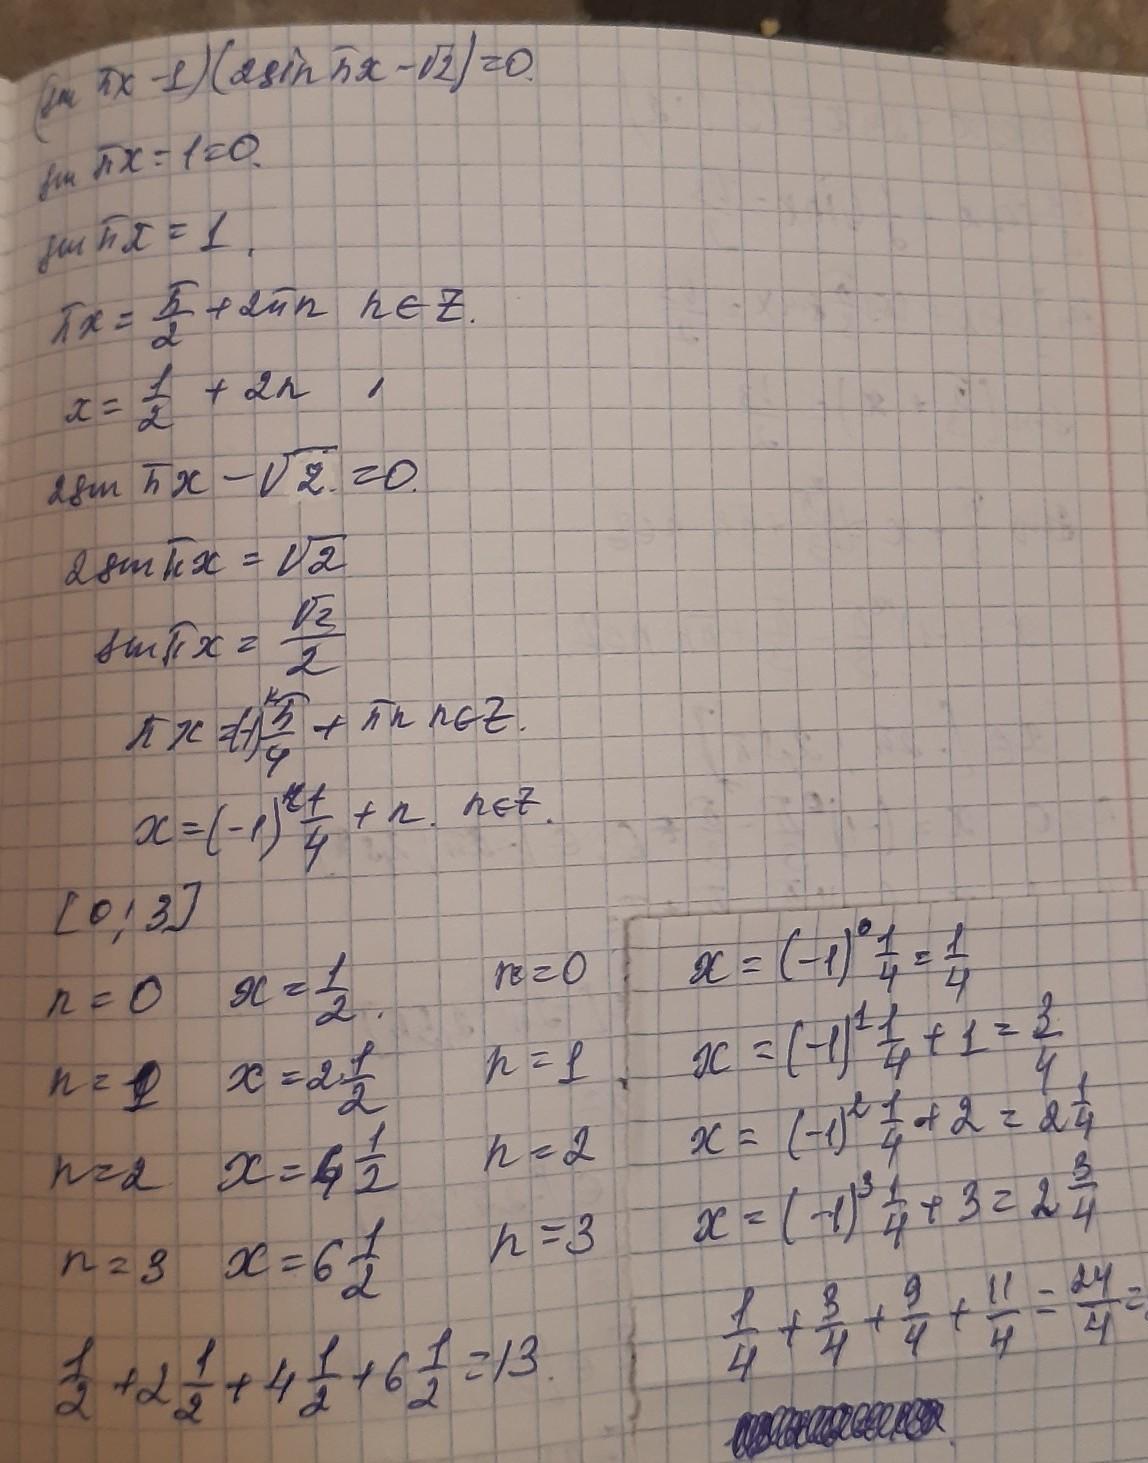 (sin πx - 1)(2sin πx - √2) = 0.
sin πx - 1 = 0.
sin πx = 1.
πx = π/2 + 2πn n ∈ Z.
x = 1/2 + 2n ,
2sin πx - √2 = 0.
2sin πx = √2
sin πx = √2/2
πx = (-1)^n π/4 + πn n ∈ Z.
x = (-1)^n 1/4 + n. n ∈ Z.
[0; 3]
n = 0 x = 1/2.
n = 1 x = 2 1/2
n = 2 x = 4 1/2
n = 3 x = 6 1/2
1/2 + 2 1/2 + 4 1/2 + 6 1/2 = 13.
n = 0 x = (-1)^0 1/4 = 1/4
n = 1 x = (-1)^1 1/4 + 1 = 3/4
n = 2 x = (-1)^2 1/4 + 2 = 2 1/4
n = 3 x = (-1)^3 1/4 + 3 = 2 3/4
1/4 + 3/4 + 9/4 + 11/4 = 24/4 =